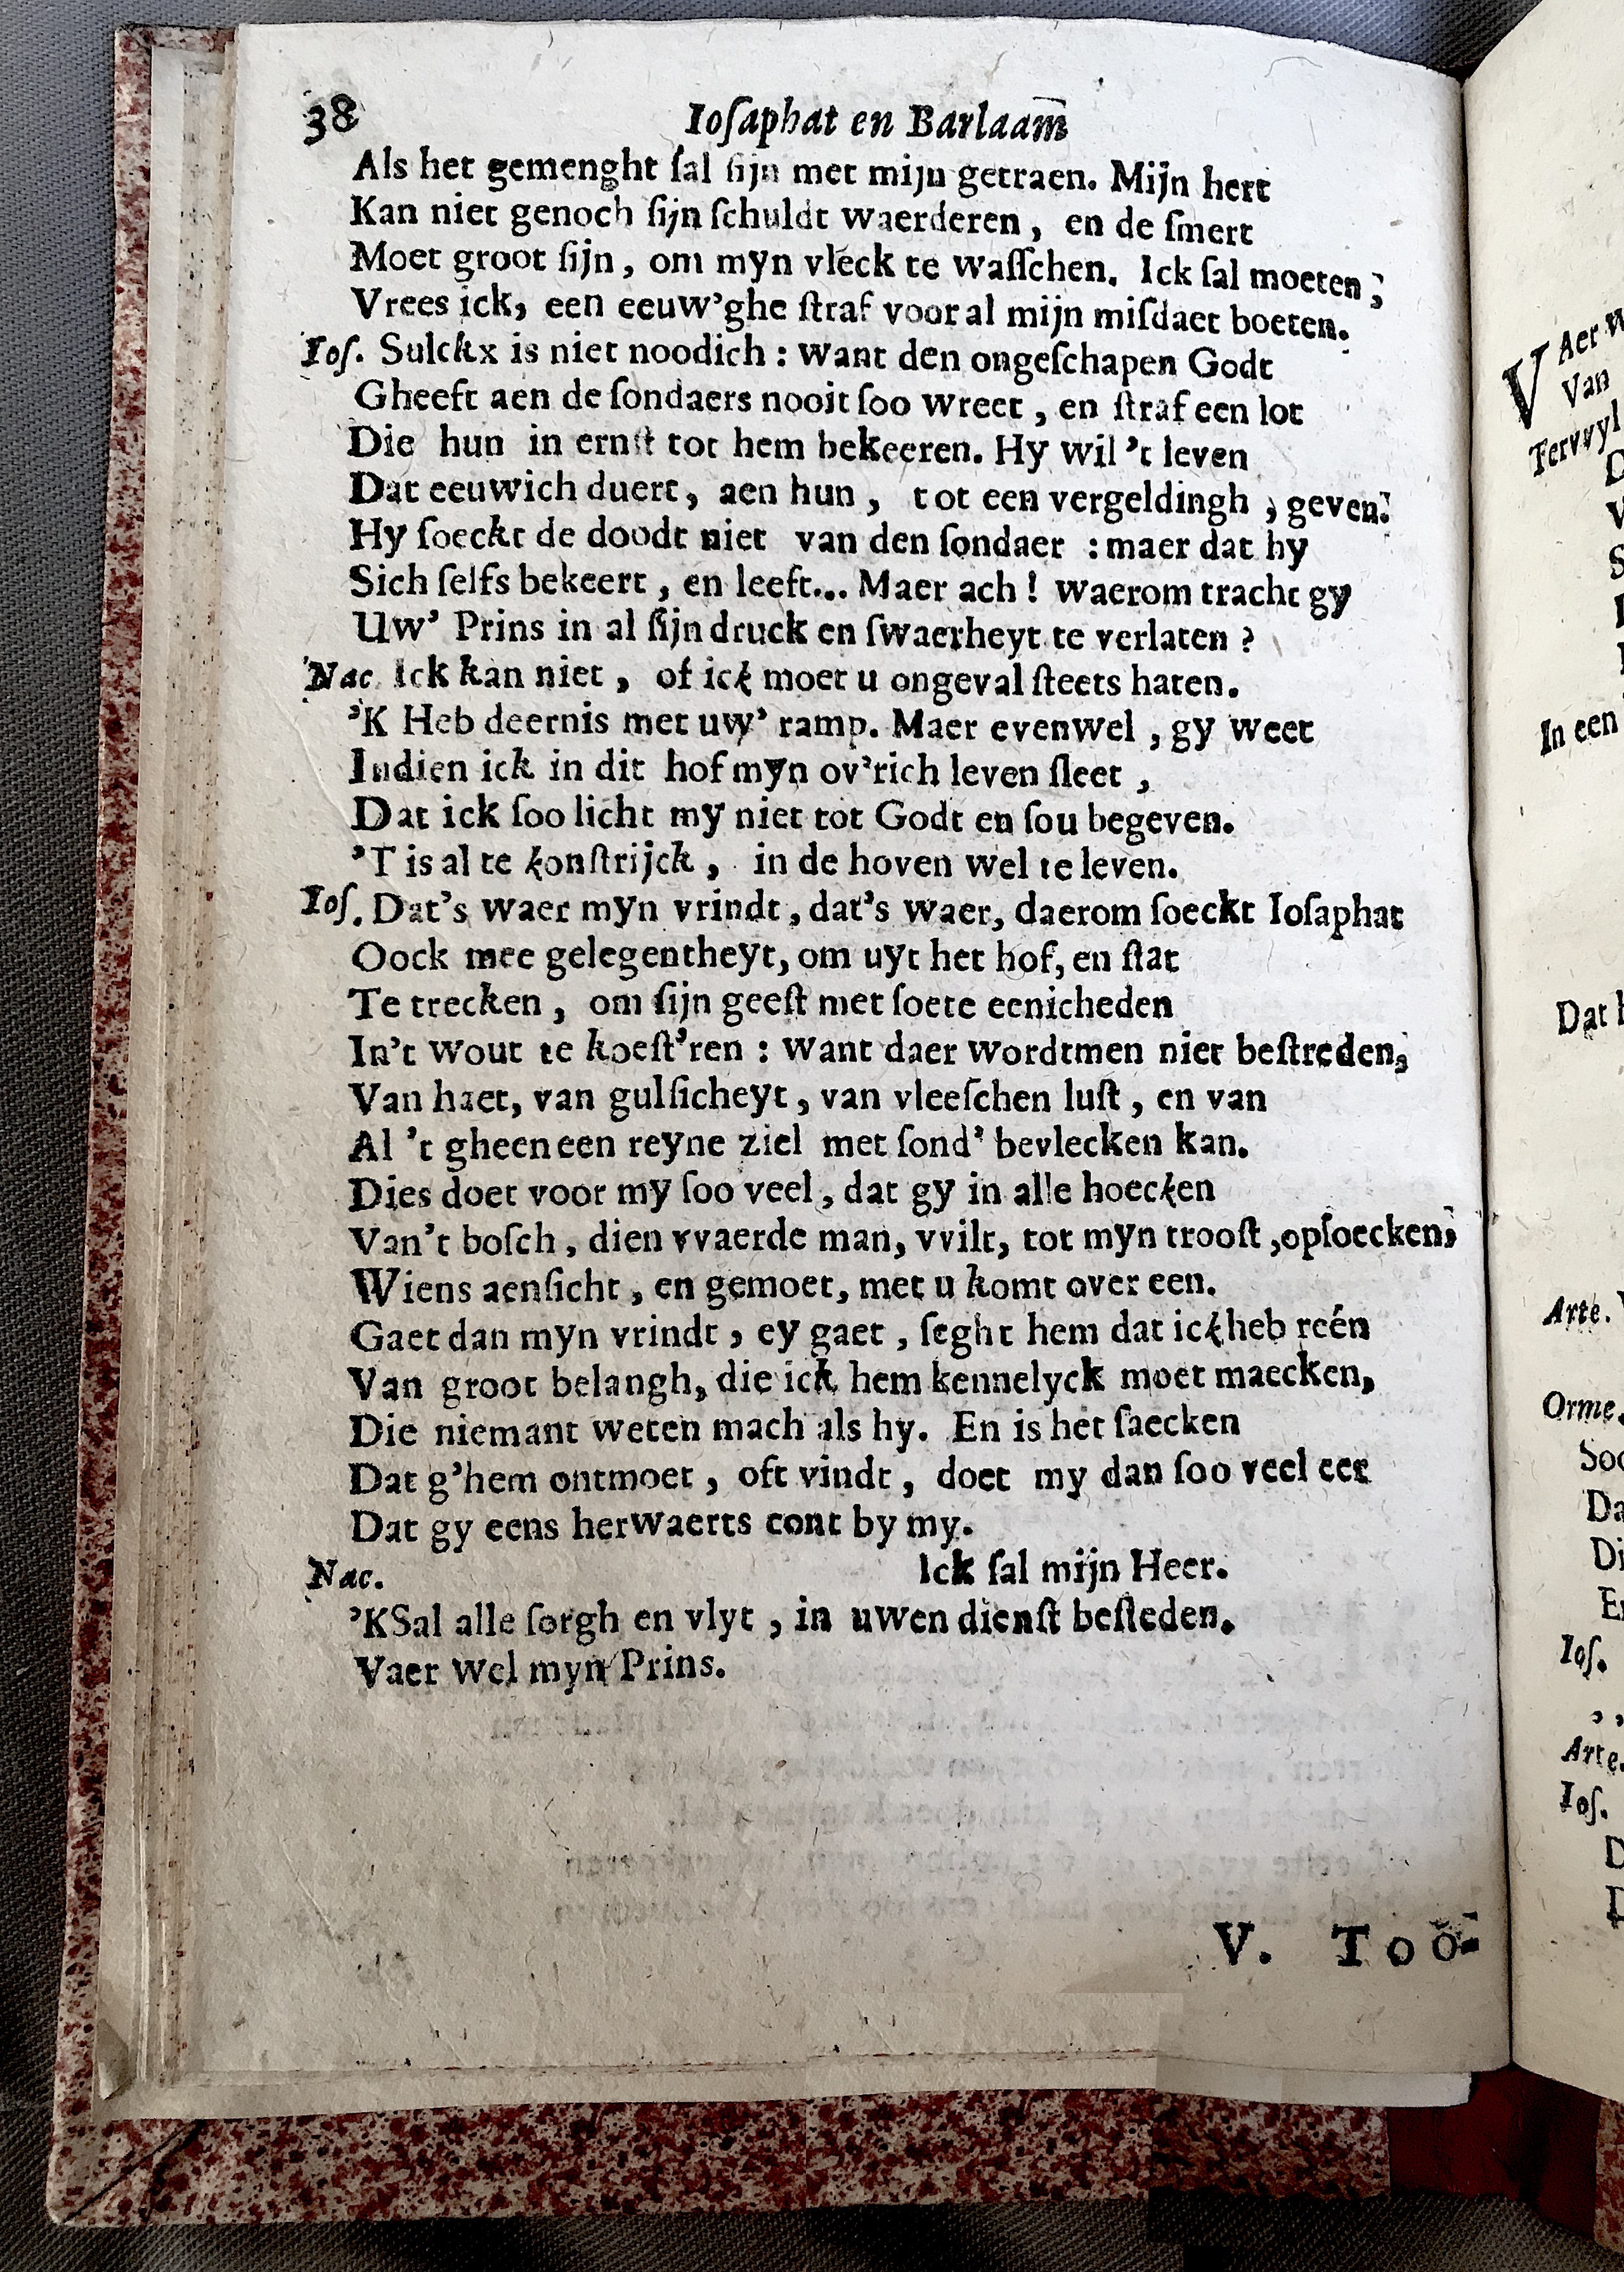 38 Ioſaphat en Barlaam̅
Als het gemenght ſal ſijn met mijn getraen. Mijn hert
Kan niet genoch ſijn ſchuldt waerderen, en de ſmert
Moet groot ſijn, om myn vleck te waſſchen. Ick ſal moeten,
Vrees ick, een eeuw'ghe ſtraf voor al mijn miſdaet boeten.
Ioſ. Sulckx is niet noodich: want den ongeſchapen Godt
Gheeft aen de ſondaers nooit ſoo wreet, en ſtraf een lot
Die hun in ernſt tot hem bekeeren. Hy wil 't leven
Dat eeuwich duert, aen hun, tot een vergeldingh, geven.
Hy ſoeckt de doodt niet van den ſondaer: maer dat hy
Sich ſelfs bekeert, en leeft... Maer ach! waerom tracht gy
Uw' Prins in al ſijn druck en ſwaerheyt te verlaten?
Nac Ick kan niet, of ick moet u ongeval ſteets haten.
'K Heb deernis met uw' ramp. Maer evenwel, gy weet
Indien ick in dit hof myn ov'rich leven ſleet,
Dat ick ſoo licht my niet tot Godt en ſou begeven.
'T is al te konſtrijck, in de hoven wel te leven.
Ioſ. Dat's waer myn vrindt, dat's waer, daerom ſoeckt Ioſaphat
Oock mee gelegentheyt, om uyt het hof, en ſtat
Te trecken, om ſijn geeſt met ſoete eenicheden
In't wout te koeſt'ren: want daer wordtmen niet beſtreden,
Van haet, van gulſicheyt, van vleeſchen luſt, en van
Al 't gheen een reyne ziel met ſond' bevlecken kan.
Dies doet voor my ſoo veel, dat gy in alle hoecken
Van't boſch, dien vvaerde man, vvilt, tot myn trooſt, opſoecken,
Wiens aenſicht, en gemoet, met u komt over een.
Gaet dan myn vrindt, ey gaet, ſeght hem dat ick heb reén
Van groot belangh, die ick hem kennelyck moet maecken,
Die niemant weten mach als hy. En is het ſaecken
Dat g'hem ontmoet, oft vindt, doet my dan ſoo veel eer
Dat gy eens herwaerts comt by my.
Nac. Ick ſal mijn Heer.
'KSal alle ſorgh en vlyt, in uwen dienſt beſteden.
Vaer wel myn Prins.
V. Too-
V Aer
Van
Tervvyl
In een
Dat
Arte.
Orme.
Soo
Da
Di
En
Ioſ.
Arte.
Ioſ.